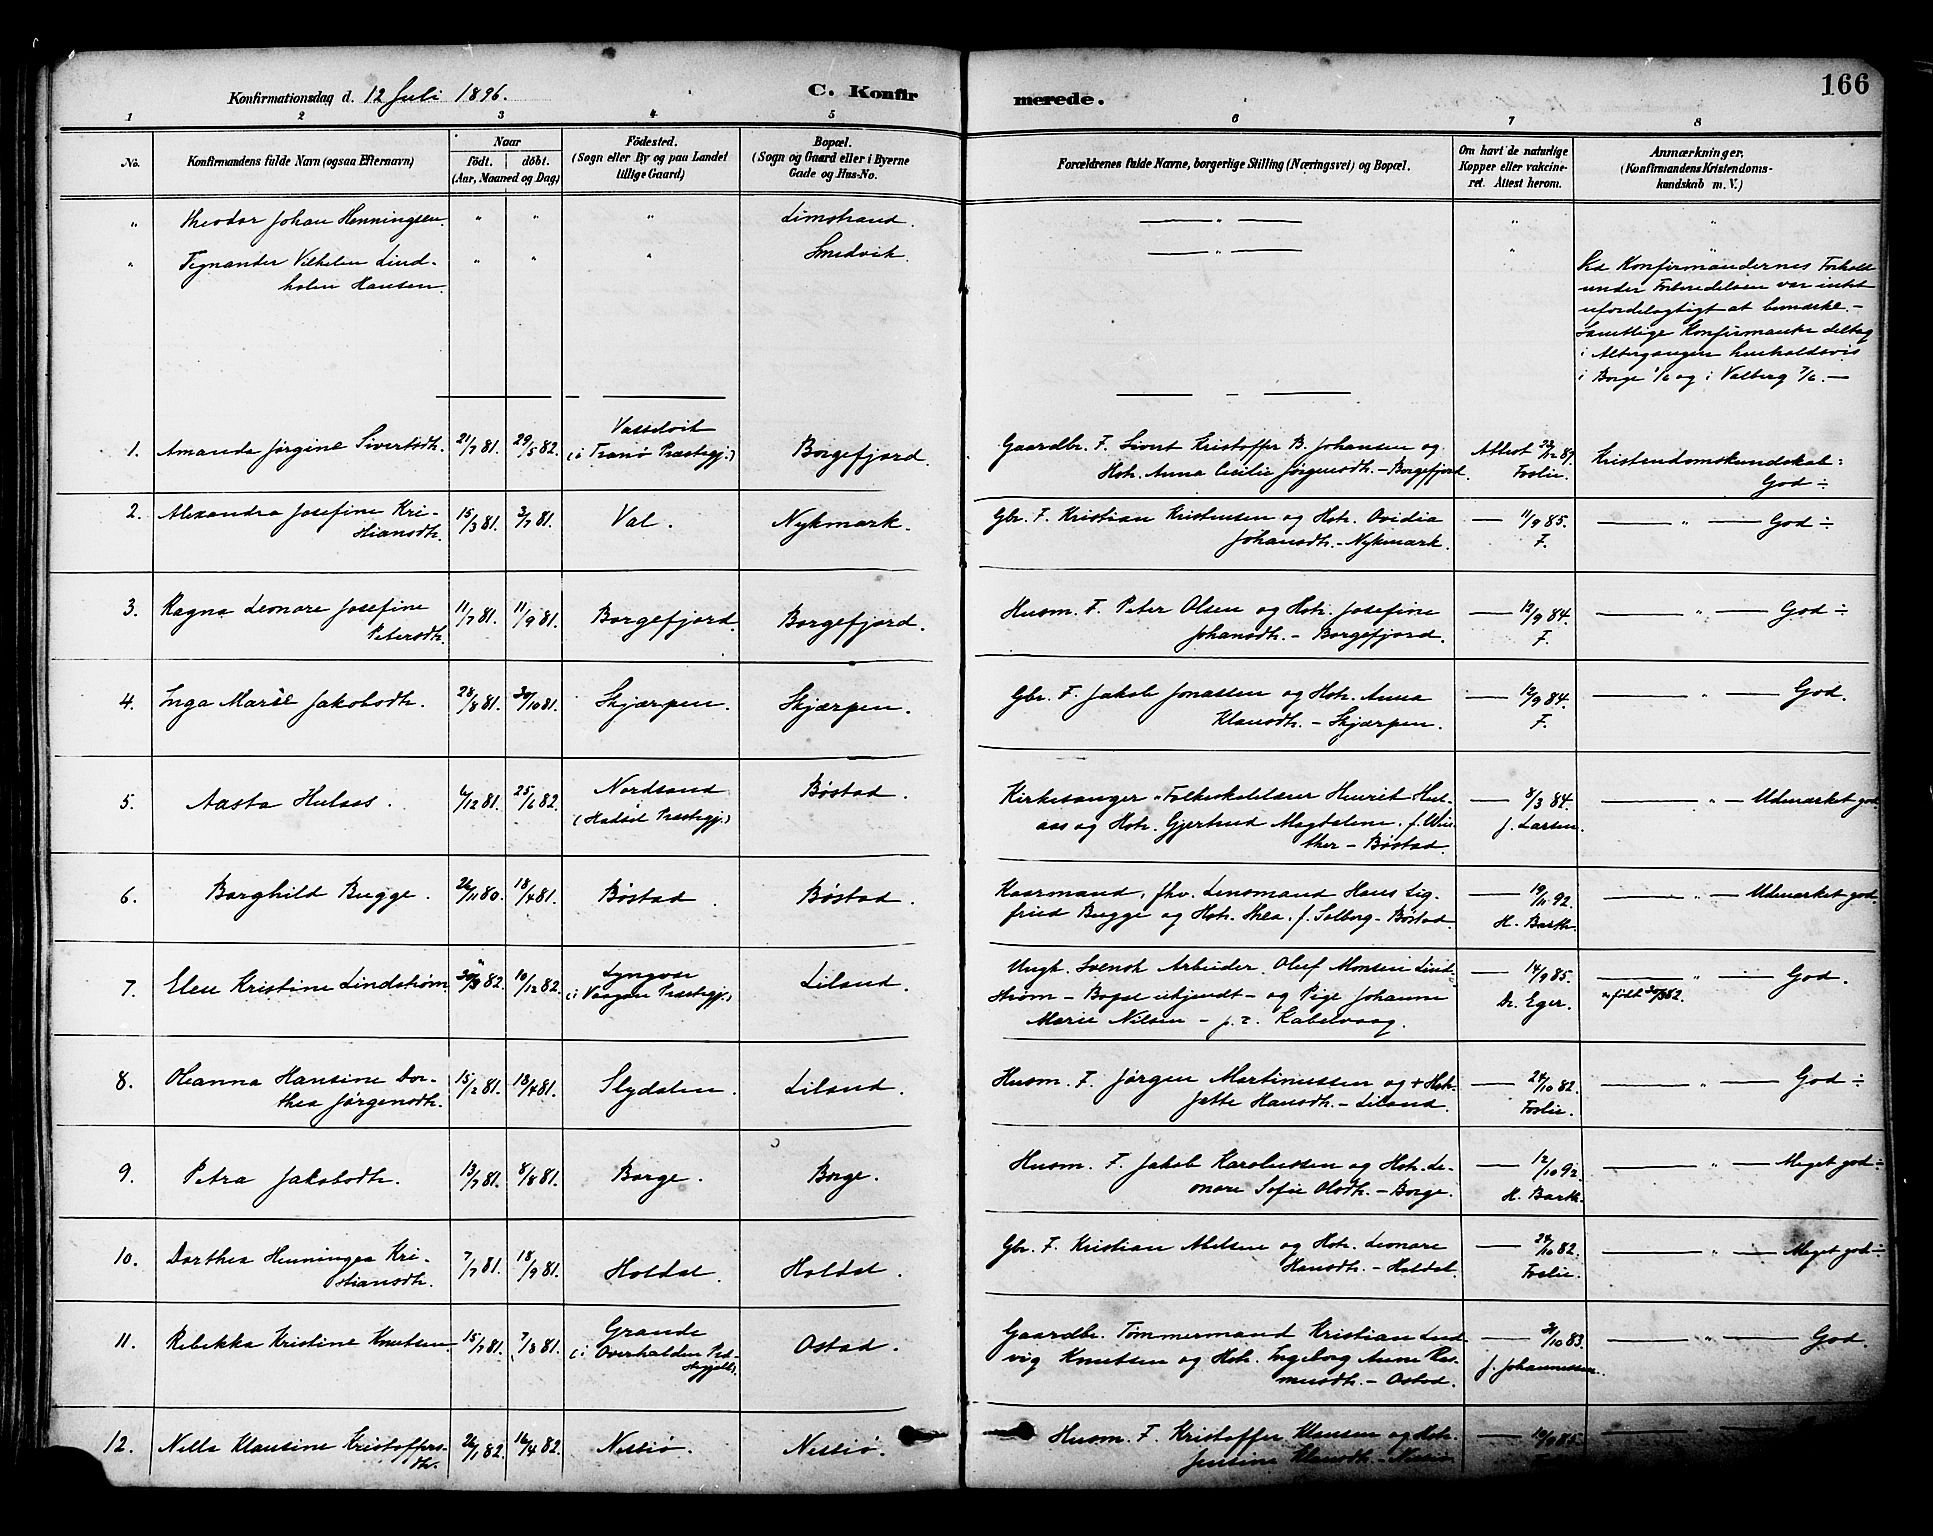 166
Konfirmationsdag d. 12 Juli 1896.
C. Konfirmerede.
1 2 3 4 5 6 7 8
No.
Konfirmandens fulde Navn (ogsaa Efternavn)
Naar
födt. döbt.
(Aar, Maaned og Dag)
Födested.
(Sogn eller By og paa Landet
tillige Gaard)
Bopæl.
(Sogn og Gaard eller i Byerne
Gade og Hus-No.
Forældrenes fulde Navne, borgerlige Stilling (Næringsvei) og Bopæl.
Om havt de naturlige
Kopper eller vakcine-
ret. Attest herom.
Anmærkninger,
(Konfirmandens Kristendoms-
kundskab m. V.)
" Theodor Johan Henningsen. " " " Limstrand. — " — " "
" Tegnander Vilhelm Lind- " " " Smedvik. — " — " "
holm Hansen.
Konfirmandernes Forhold
under Forberedelsen var intet
ufordelagtigt at bemærke. –
Samtlige Konfirmanter deltog
i Altergangen husholdsvis
i Borge 1/6 og i Valberg 7/6. —
1. Amanda Jørgine Sivertsdtr. 21/7 81. 29/5 82. Vasselvik
(i Tranø Præstegj.) Borgefjord. Gaardbr. F. Sivert Kristoffer B. Johansen og
Hstr. Anna Cecilie Jørgensdtr. – Borgefjord. Attest 22/12 87.
Foslie. Kristendomskundskab:
God ÷
2. Alexandra Josefine Kri-
stiansdtr. 15/3 81. 3/7 81. Val. Nykmark. Gbr. F. Kristian Kristensen og Hstr. Ovidia
Johansdtr. – Nykmark. — 11/9 85.
F. — " — God ÷
3. Ragna Leonore Josefine
Petersdtr. 11/7 81. 11/9 81. Borgefjord. Borgefjord. Husm. F. Peter Olsen og Hstr. Josefine
Johansdtr. – Borgefjord. — 12/9 84.
F. — " — God ÷
4. Inga Marie Jakobsdtr. 28/8 81. 30/10 81. Skjærpen. Skjærpen. Gbr. F. Jakob Jonassen og Hstr. Anna
Klausdtr. – Skjærpen. — 12/9 84.
F. — " — God.
5. Aasta Hulaas. 6/12 81. 25/6 82. Nordsand
(Hadsel Præstegj.) Bøstad. Kirkesanger & Folkeskolelærer Henrik Hul-
aas og Hstr. Gjertrud Magdalene, f. Win-
ther – Bøstad. — 8/3 84.
J. Larsen. — " — Udmærket god.
6. Borghild Bugge. 26/11 80. 18/4 81. Bøstad. Bøstad. Kaarmand, fhv. Lensmand Hans Sig-
fried Bugge og Hstr. Thea, f. Solberg – Bøstad. — 19/11 92.
H. Barth. — " — Udmærket god.
7. Elen Kristine Lindstrøm 30/9 82. 10/12 82. Lyngvær
(i Vaagan Præstegj.) Liland. Ungk. Svensk Arbeider Oluf Monsen Lind-
strøm – Bopæl ubekjendt – og Pige Johanne
Marie Nilsen – p. t. Kabelvaag. — 14/9 85.
Dr. Eger. — " — God.
8. Oleanna Hansine Dor-
thea Jørgensdtr. 15/2 81. 18/4 81. Slydalen. Liland. Husm. F. Jørgen Martinussen og + Hstr.
Jette Hansdtr. – Liland. — 24/10 82.
Foslie. — " — God ÷
9. Petra Jakobsdtr. 13/7 81. 8/8 81. Borge. Borge. Husm. F. Jakob Karolussen og Hstr. Le-
onore Sofie Olsdtr. – Borge. — 12/10 92.
H. Barth. — " — Meget god ÷
10. Dorthea Henningea Kri-
stiansdtr. 7/7 81. 18/9 81. Holdal. Holdal. Gbr. F. Kristian Abelsen og Hstr. Leonore
Hansdtr. – Holdal. — 24/10 82.
Foslie. — " — Meget god ÷
11. Rebekka Kristine Knutsen 15/7 81. 7/8 81. Grande
(i Overhalden Præ-
stegjeld). Ostad. Gaardbr. Tømmermand Kristian Lud-
vig Knutsen og Hstr. Ingeborg Anne Ras-
musdtr. – Ostad. — 31/10 83.
J. Johannessen. — " — God.
12. Nella Klausine Kristoffers-
dtr. 26/1 82. 16/4 82. Nessiø. Nessiø. Husm. F. Kristoffer Klausen og Hstr.
Jensine Klausdtr. – Nessiø. — 12/9 85.